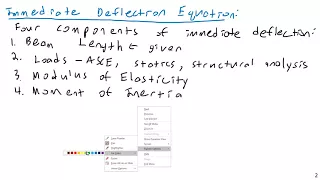 Immediate Deflectron Equation:
Four components of immediate deflection:
1. Beam Length given
2. Loads - ASCE, statics, structural analysis
3. Modulus of Elasticity
4. Moment of Inertia
2